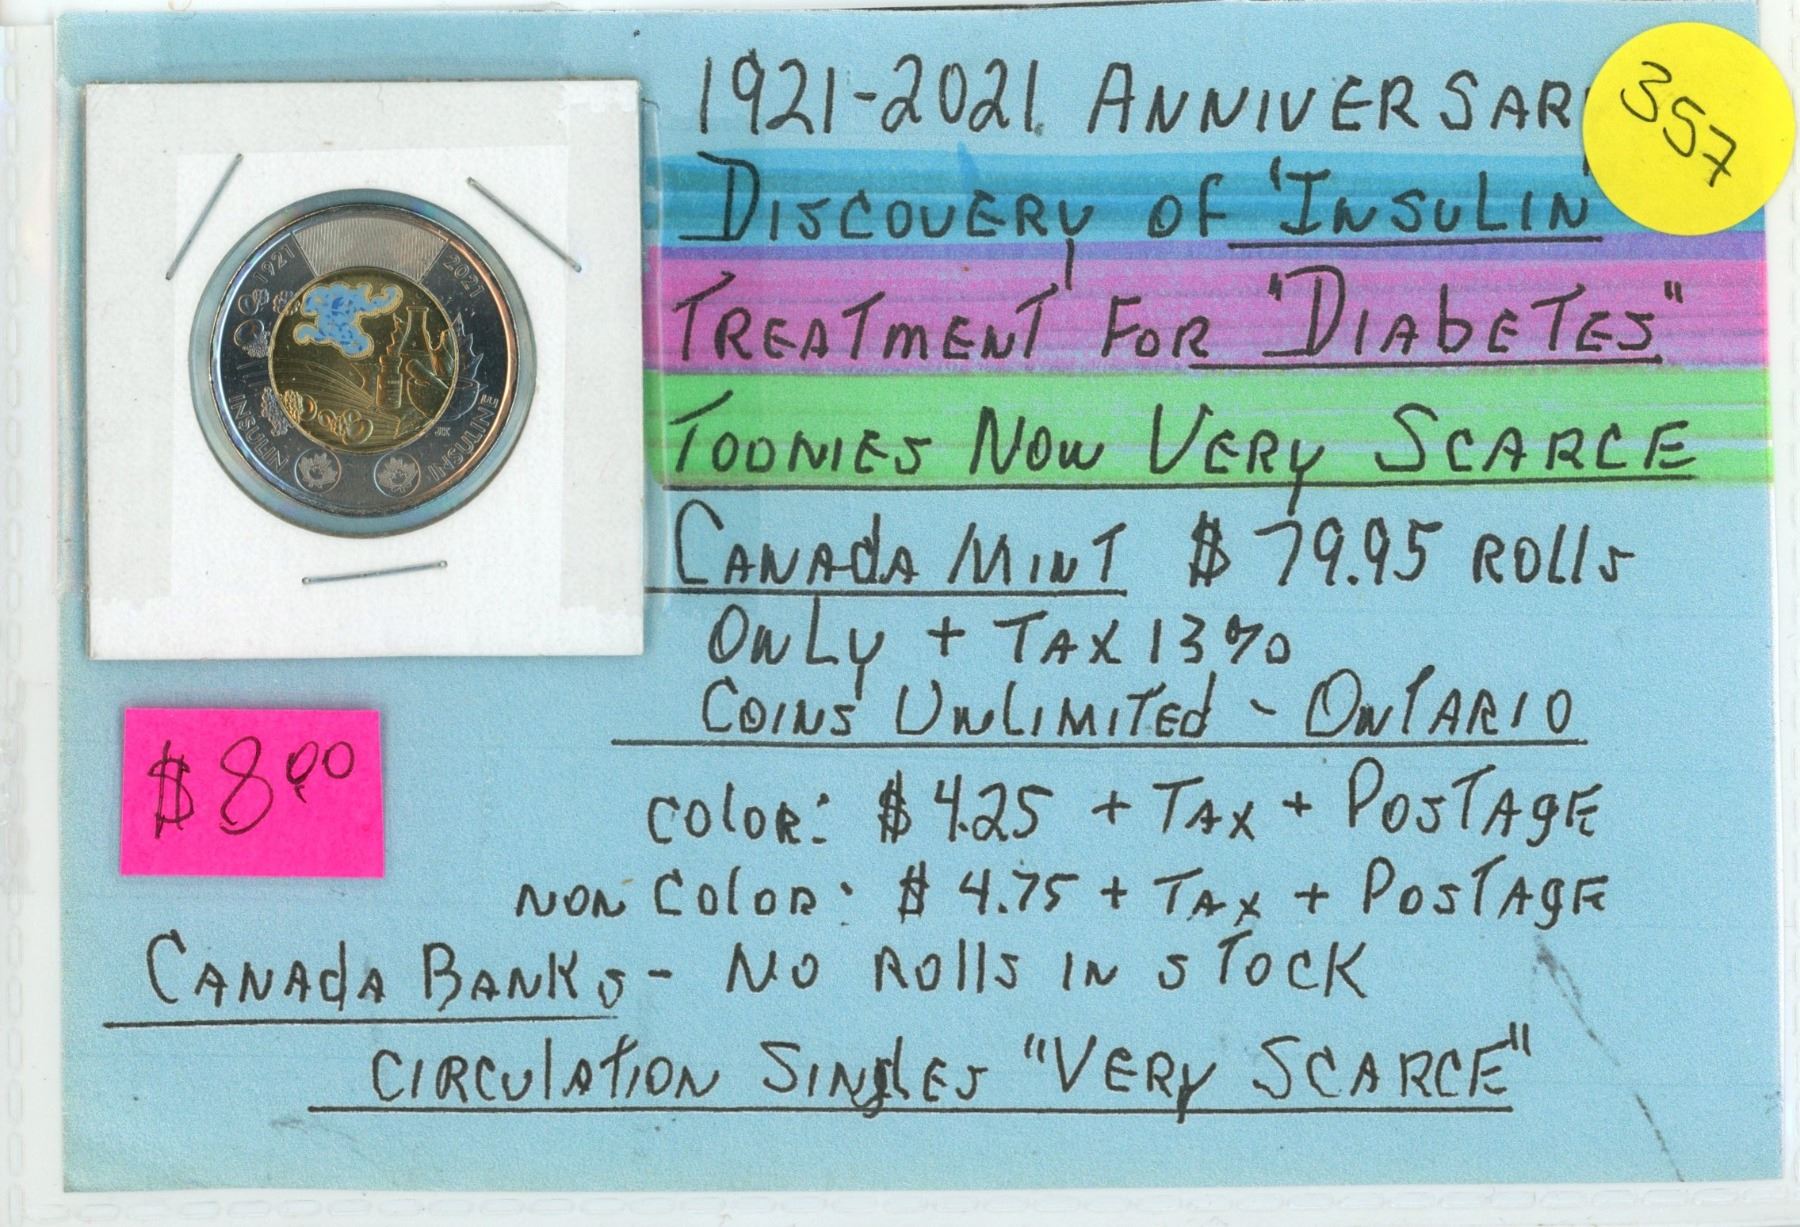 1921-2021 ANNIVERSAR
357
DISCOVERY OF 'INSULIN'
TREATMENT FOR "DIABETES"
TOONIES NOW VERY SCARCE
CANADA MINT $79.95 ROLLS
ONLY + TAX 13%
COINS UNLIMITED - ONTARIO
COLOR: $4.25 + TAX + POSTAGE
NON COLOR: $4.75 + TAX + POSTAGE
CANADA BANKS - NO ROLLS IN STOCK
CIRCULATION SINGLES "VERY SCARCE"
$8.00
1921
2021
INSULIN
INSULINE
JK